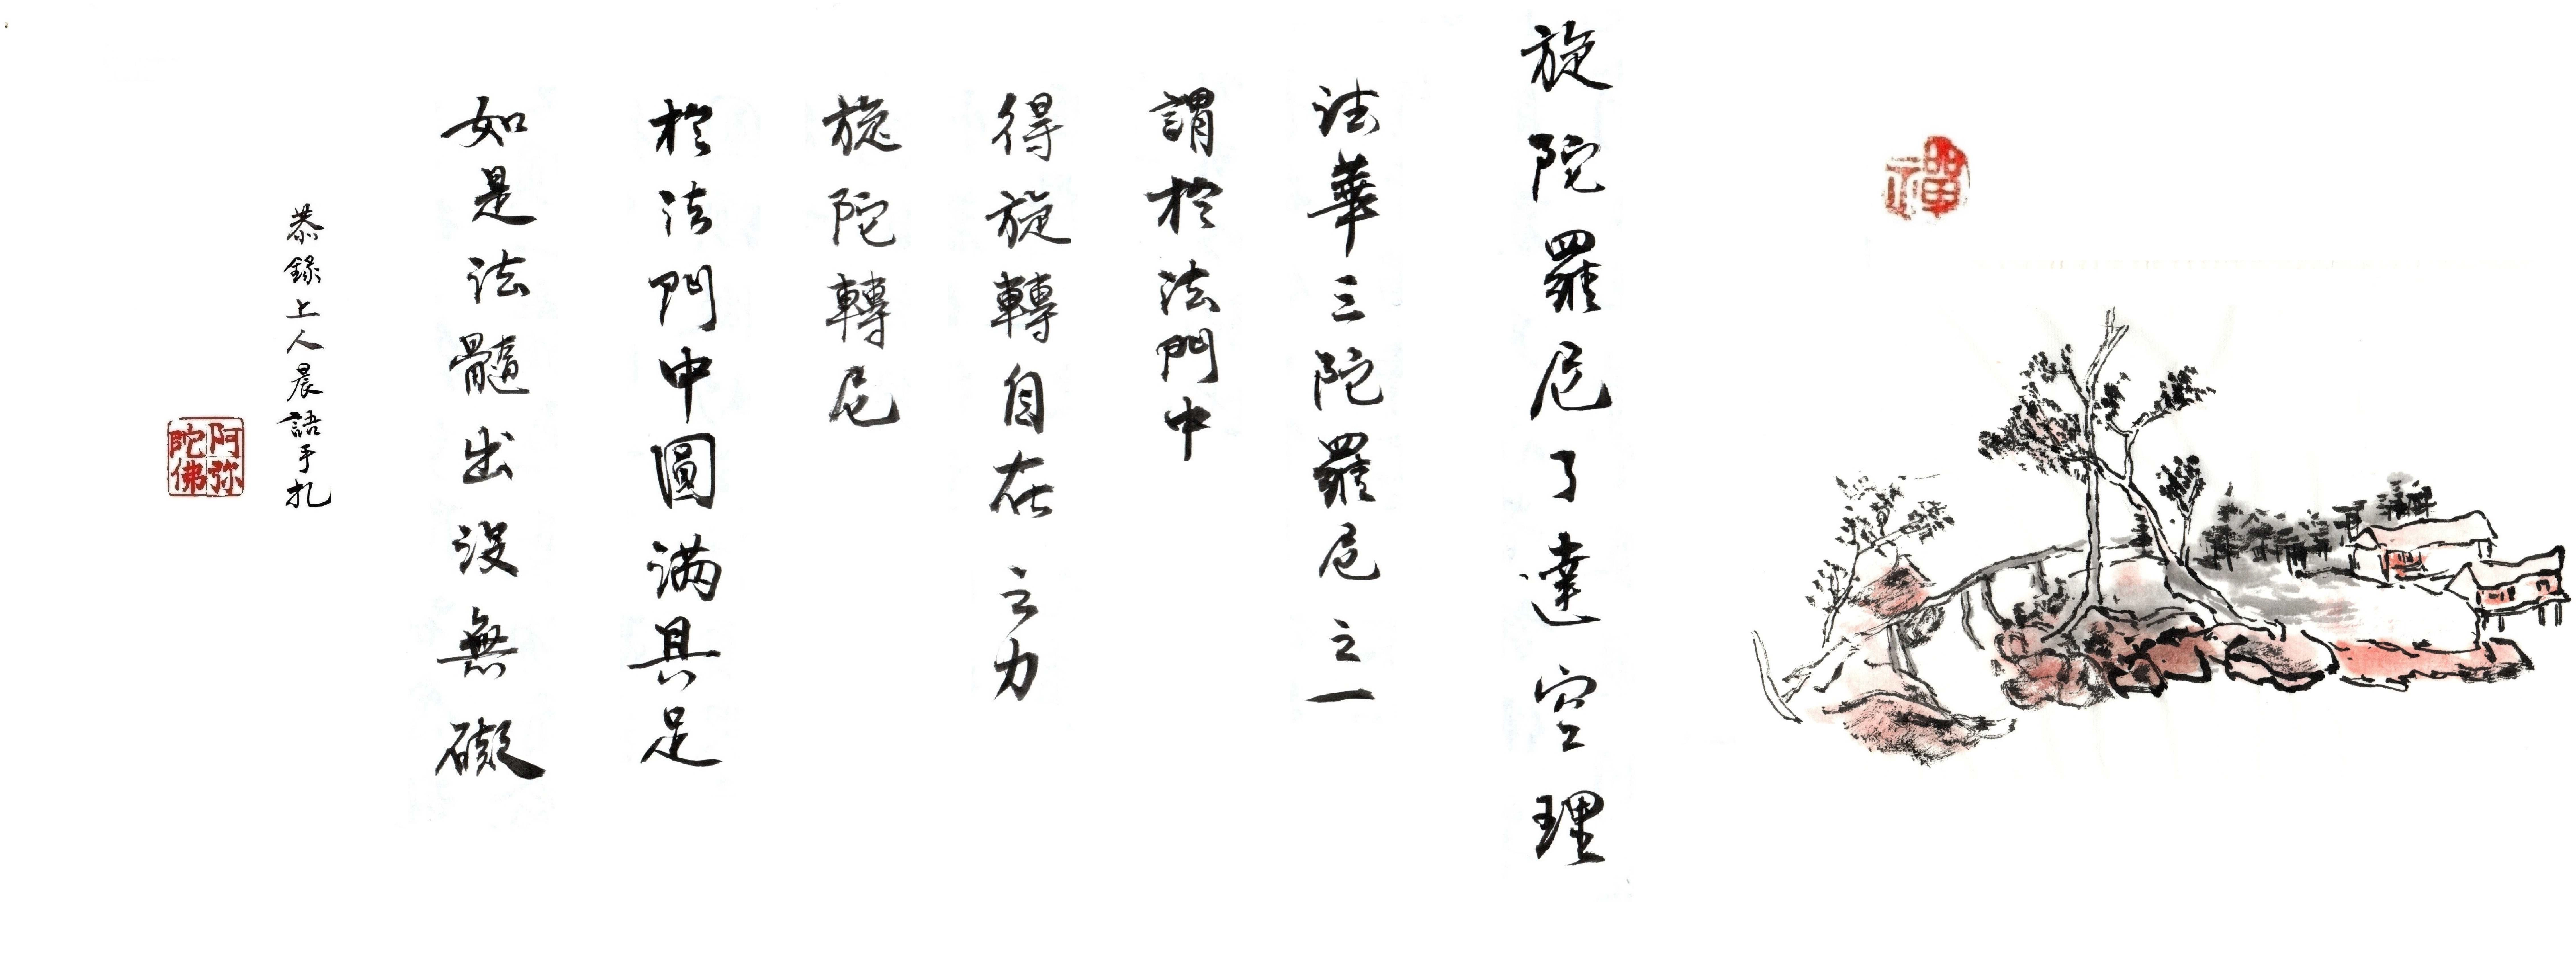 禪
旋陀羅尼了達空理
法華三陀羅尼之一
謂於法門中
得旋轉自在之力
旋陀轉尼
於法門中圓滿具足
如是法髓出沒無礙
恭錄上人晨語手扎
阿弥陀佛